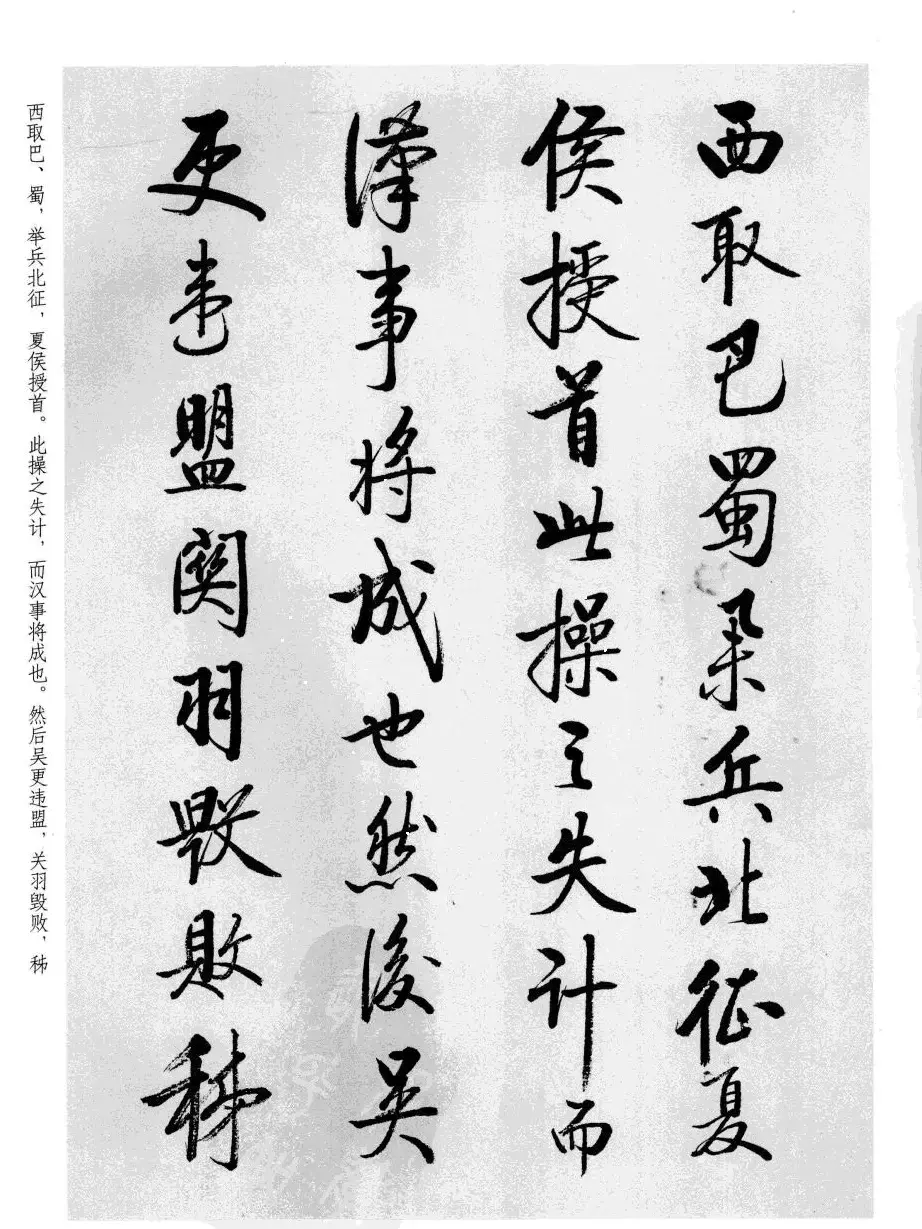 西取巴蜀舉兵北征夏
侯授首此操之失計而
漢事将成也然後吳
更違盟關羽毀敗秭
西取巴、蜀，举兵北征，夏侯授首。此操之失计，而汉事将成也。然后吴更违盟，关羽毁败，秭